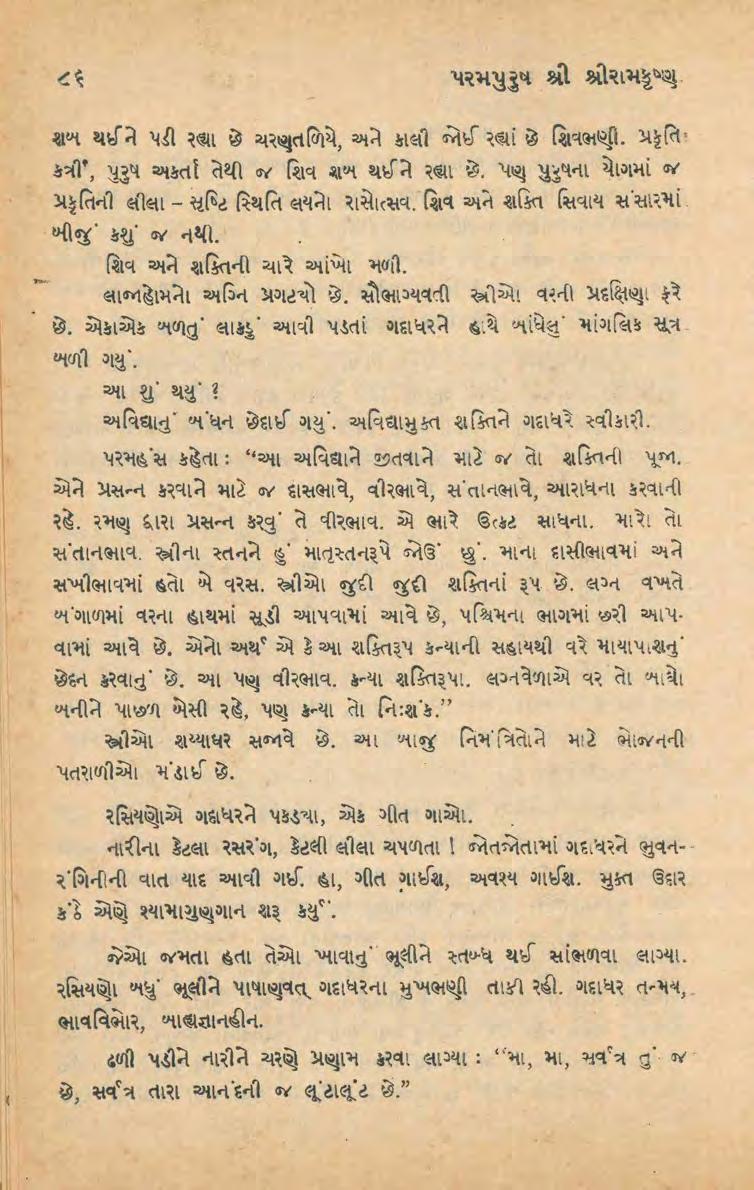 ૮૬ પરમપુરુષ શ્રી શ્રીરામકૃષ્ણ
શબ થઈને પડી રહ્યા છે ચરણતળિયે, અને કાલી જોઈ રહ્યાં છે શિવભણી. પ્રકૃતિ
કર્ત્રી, પુરુષ અકર્તા તેથી જ શિવ શબ થઈને રહ્યા છે. પણ પુરુષના યોગમાં જ
પ્રકૃતિની લીલા – સૃષ્ટિ સ્થિતિ લયનો રાસોત્સવ. શિવ અને શક્તિ સિવાય સંસારમાં
બીજું કશું જ નથી.
શિવ અને શક્તિની ચારે આંખો મળી.
લાજાહોમનો અગ્નિ પ્રગટ્યો છે. સૌભાગ્યવતી સ્ત્રીઓ વરની પ્રદક્ષિણા કરે
છે. એકાએક બળતું લાકડું આવી પડતાં ગદાધરને હાથે બાંધેલું માંગલિક સૂત્ર
બળી ગયું.
આ શું થયું ?
અવિદ્યાનું બંધન છેદાઈ ગયું. અવિદ્યામુક્ત શક્તિને ગદાધરે સ્વીકારી.
પરમહંસ કહેતા : “આ અવિદ્યાને જીતવાને માટે જ તો શક્તિની પૂજા.
એને પ્રસન્ન કરવાને માટે જ દાસભાવે, વીરભાવે, સંતાનભાવે, આરાધના કરવાની
રહે. રમણ દ્વારા પ્રસન્ન કરવું તે વીરભાવ. એ ભારે ઉત્કટ સાધના. મારો તો
સંતાનભાવ. સ્ત્રીના સ્તનને હું માતૃસ્તનરૂપે જોઉં છું. માના દાસીભાવમાં અને
સખીભાવમાં હતો બે વરસ. સ્ત્રીઓ જુદી જુદી શક્તિનાં રૂપ છે. લગ્ન વખતે
બંગાળમાં વરના હાથમાં સૂડી આપવામાં આવે છે, પશ્ચિમના ભાગમાં છરી આપ-
વામાં આવે છે. એનો અર્થ એ કે આ શક્તિરૂપ કન્યાની સહાયથી વરે માયાપાશનું
છેદન કરવાનું છે. આ પણ વીરભાવ. કન્યા શક્તિરૂપા. લગ્નવેળાએ વર તો બાઘો
બનીને પાછળ બેસી રહે, પણ કન્યા તો નિઃશંક.”
સ્ત્રીઓ શય્યાઘર સજાવે છે. આ બાજુ નિમંત્રિતોને માટે ભોજનની
પતરાળીઓ મંડાઈ છે.
રસિયણોએ ગદાધરને પકડ્યા, એક ગીત ગાઓ.
નારીના કેટલા રસરંગ, કેટલી લીલા ચપળતા ! જોતજોતામાં ગદાધરને ભુવન-
રંગિનીની વાત યાદ આવી ગઈ. હા, ગીત ગાઈશ, અવશ્ય ગાઈશ. મુક્ત ઉદાર
કંઠે એણે શ્યામાગુણગાન શરૂ કર્યું.
જેઓ જમતા હતા તેઓ ખાવાનું ભૂલીને સ્તબ્ધ થઈ સાંભળવા લાગ્યા.
રસિયણો બધું ભૂલીને પાષાણવત્ ગદાધરના મુખભણી તાકી રહી. ગદાધર તન્મય,
ભાવવિભોર, બાહ્યજ્ઞાનહીન.
ઢળી પડીને નારીને ચરણે પ્રણામ કરવા લાગ્યા : “મા, મા, સર્વત્ર તું જ
છે, સર્વત્ર તારા આનંદની જ લૂંટાલૂંટ છે.”